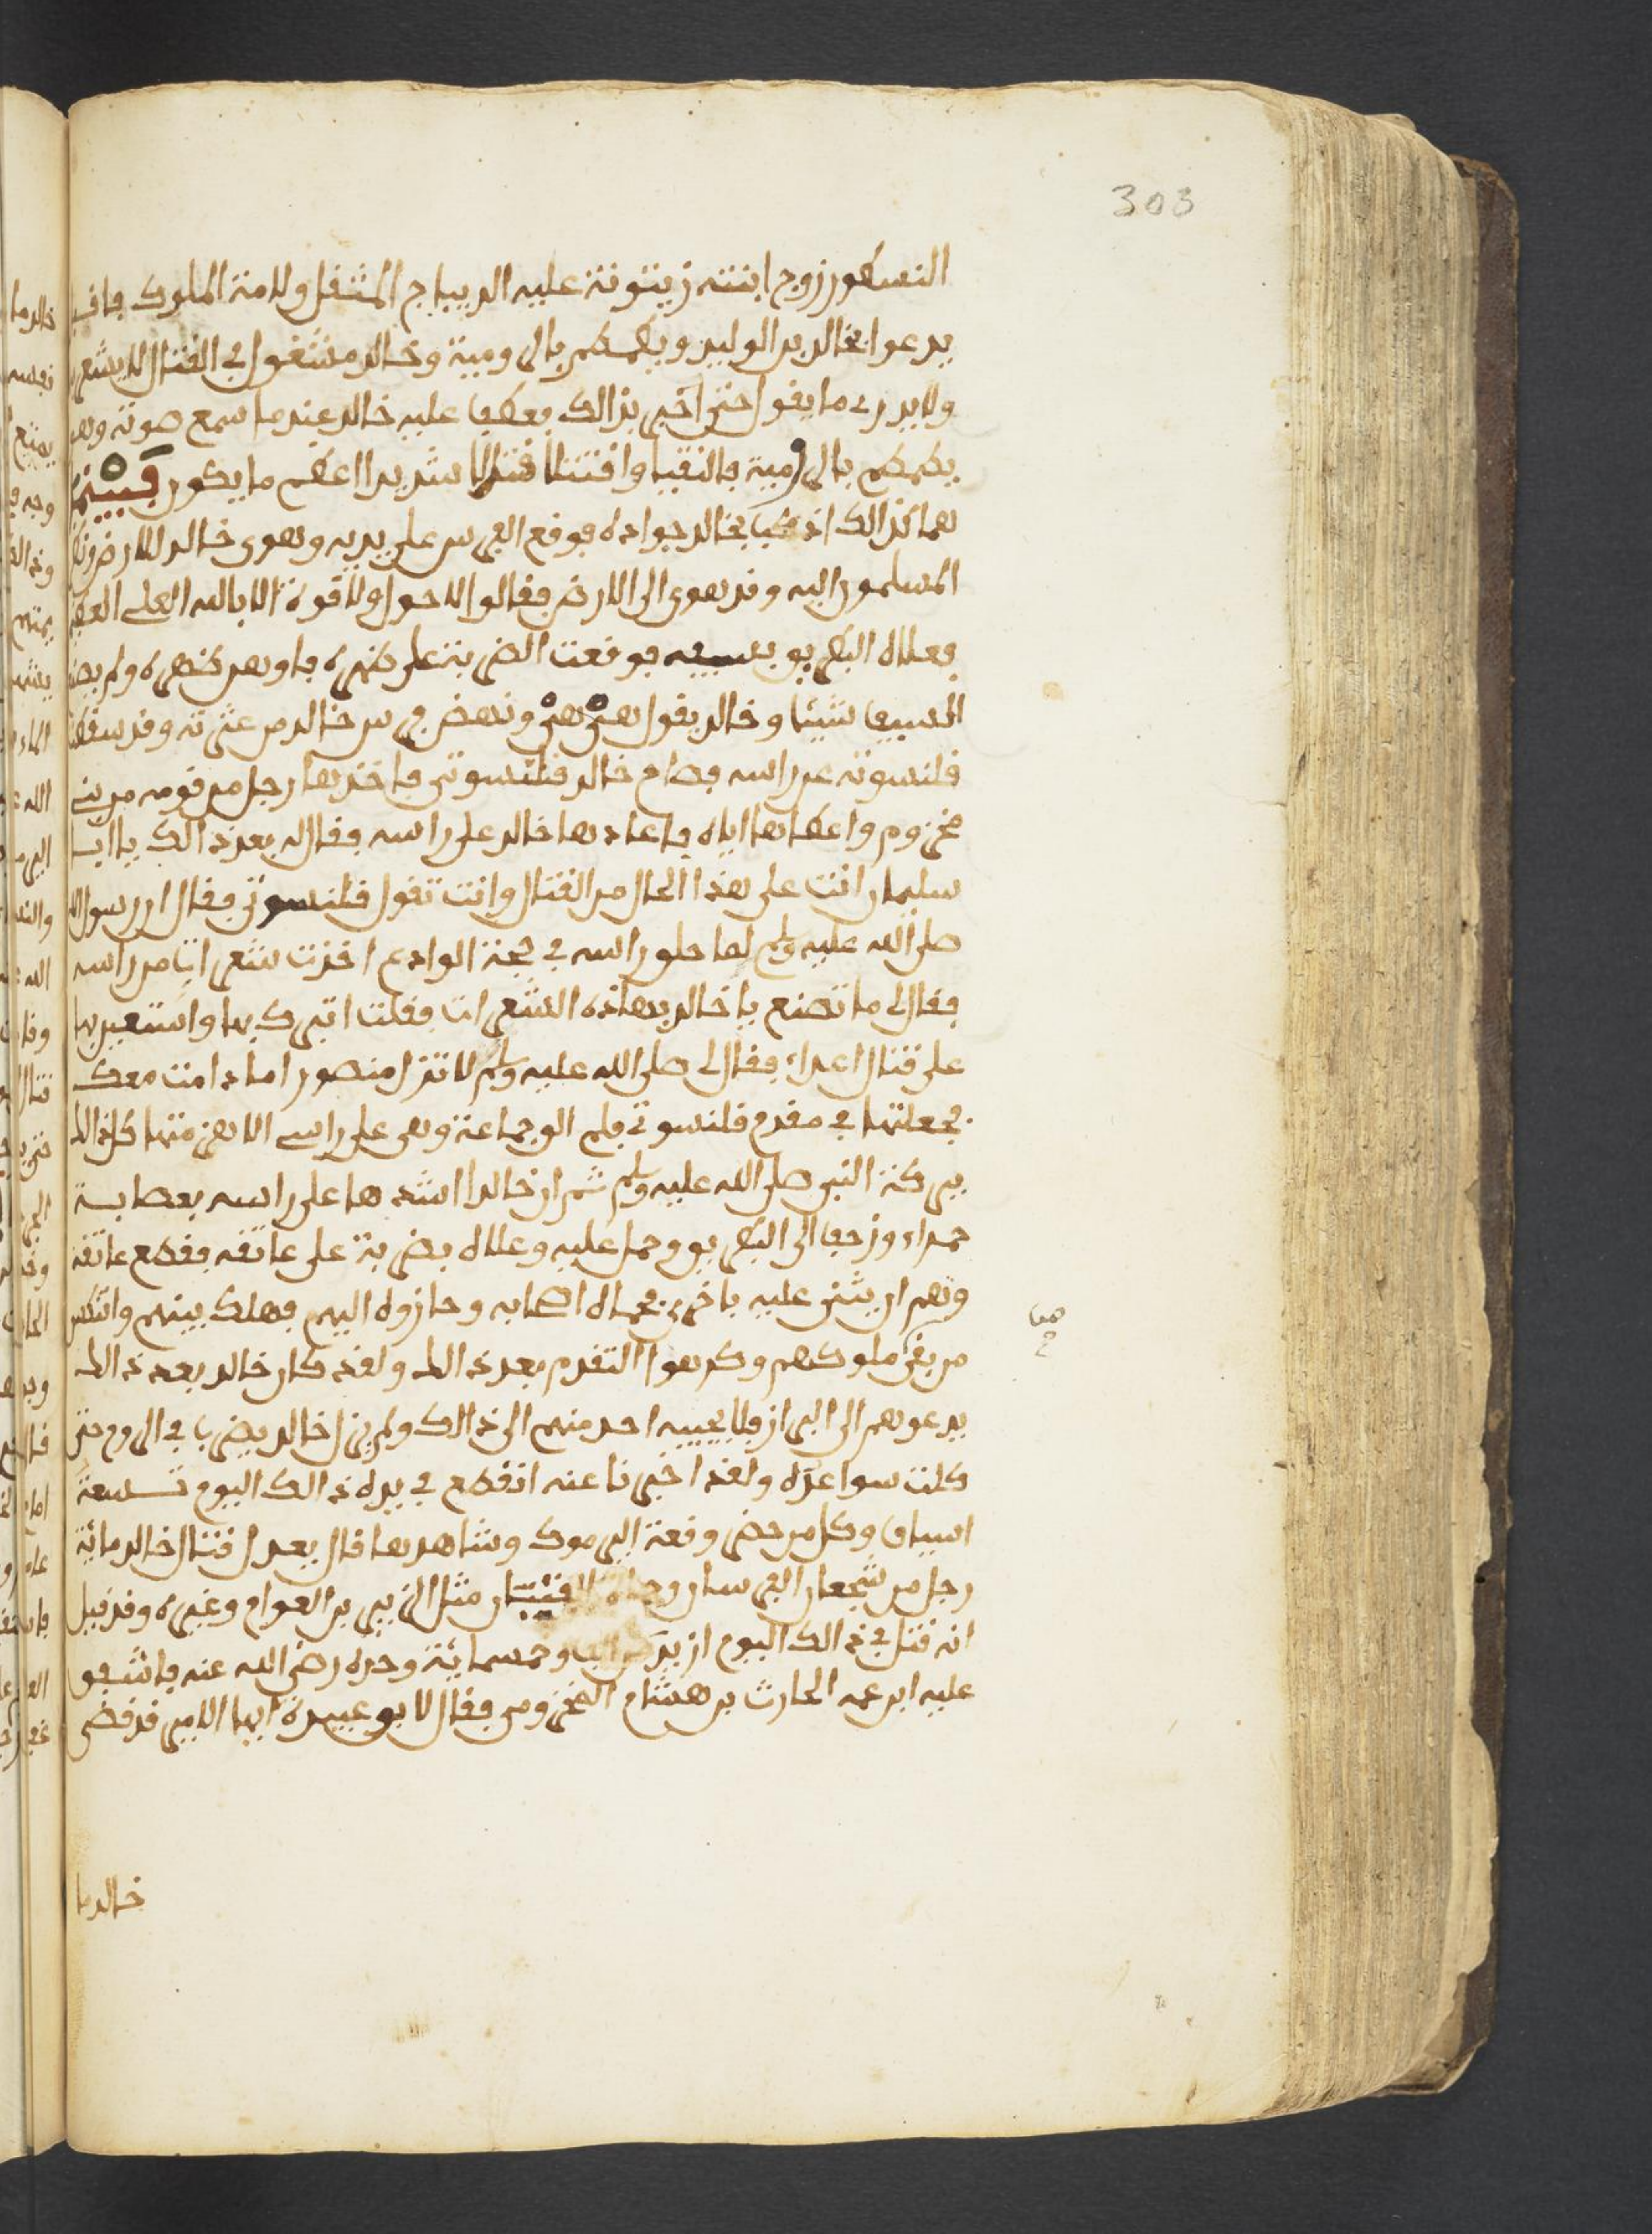 303
النسطور زوج ابنته زيتونة عليه الديباج المثقل ولامة الملوك فاقبل
يدعوا بخالد بن الوليد ويطمطم بالرومية وخالد مشتغول في القتال لا يشعر
ولا يدري ما يقول حتى اخبر بذالك فعطف عليه خالد عندما سمع صوته وهو
يطمطم بالرومية فالتقيا واقتتلا قتالا شديدا اعظم ما يكون فبينما
هما كذالك اذ كبا بخالد جواده فوقع الفرس على يديه وهوى خالد للارض ونظر
المسلمون اليه وقد هوى الى الارض فقالوا لا حول ولا قوة الا بالله العلي العظيم
فعلاه البطريق بسيفه فوقعت الضربة على ظهره فاوهن ظهره ولم يصنع
السيف شيئا وخالد يقول هي هي ونهض فرس خالد من عثرته وقد سقطت
قلنسوته عن راسه فصاح خالد قلنسوتي فاخذها رجل من قومه من بني
مخزوم واعطاها اياه فاعادها خالد على راسه فقال له بعد ذالك يا ابا
سليمان انت على هذا الحال من القتال وانت تقول قلنسوتي فقال ان رسول الله
صلى الله عليه وسلم لما حلق راسه في حجة الوداع اخذت شعرات من راسه
فقال لي ما تصنع يا خالد بهاذه الشعرات فقلت اتبرك بها واستعين بها
على قتال اعداء فقال لي صلى الله عليه وسلم لا تزل منصورا ما دامت معك
فجعلتها في مقدم قلنسوتي فلم الق جماعة وهي على راسي الا هزمتها كل ذالك
ببركة النبي صلى الله عليه وسلم ثم ان خالدا اشدها على راسه بعصابة
حمراء وزحف الى البطريق وحمل عليه وعلاه بضربة على عاتقه فقطع عاتقه
وهم ان يثني عليه باخرى فحماه اصحابه وحازوه اليهم فهلك بينهم وانكسر
من بقي ملوكهم وكرهوا التقدم بعد ذالك ولقد كان خالد بعد ذالك
يدعوهم الى البراز فلا يجيبه احد منهم الى ذالك ولم يزل خالد يضرب في الروم حتى
كلت سواعده ولقد اخبرنا عنه انقطع في يده ذالك اليوم تسعة
اسياف وكل من حضر وقعة اليرموك وشاهدها قال يعدل قتال خالد مائة
رجل من شجعان الفرسان وحماة الفتيان مثل الزبير بن العوام وغيره وقد قيل
انه قتل في ذالك اليوم ازيد من الف وخمسمائة وحده رضي الله عنه فاشفق
عليه ابن عمه الحارث بن هشام المخزومي فقال لابو عبيدة ايها الامير قد قضى
خالد ما